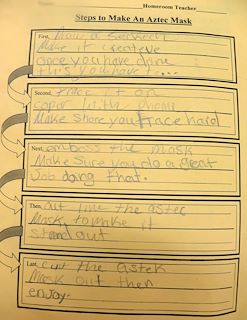 Homeroom Teacher
Steps to Make An Aztec Mask
First, Draw a scketch
Make it creative
once you have done
this you have to...
Second, trace it on
copor with phone
Make Shore you trace hard
Next, emboss the mask
Make Sure you do a great
Job doing that.
Then, out line the astec
Mask to make it
stand out
Last, cut the astek
Mask out then
enjoy.